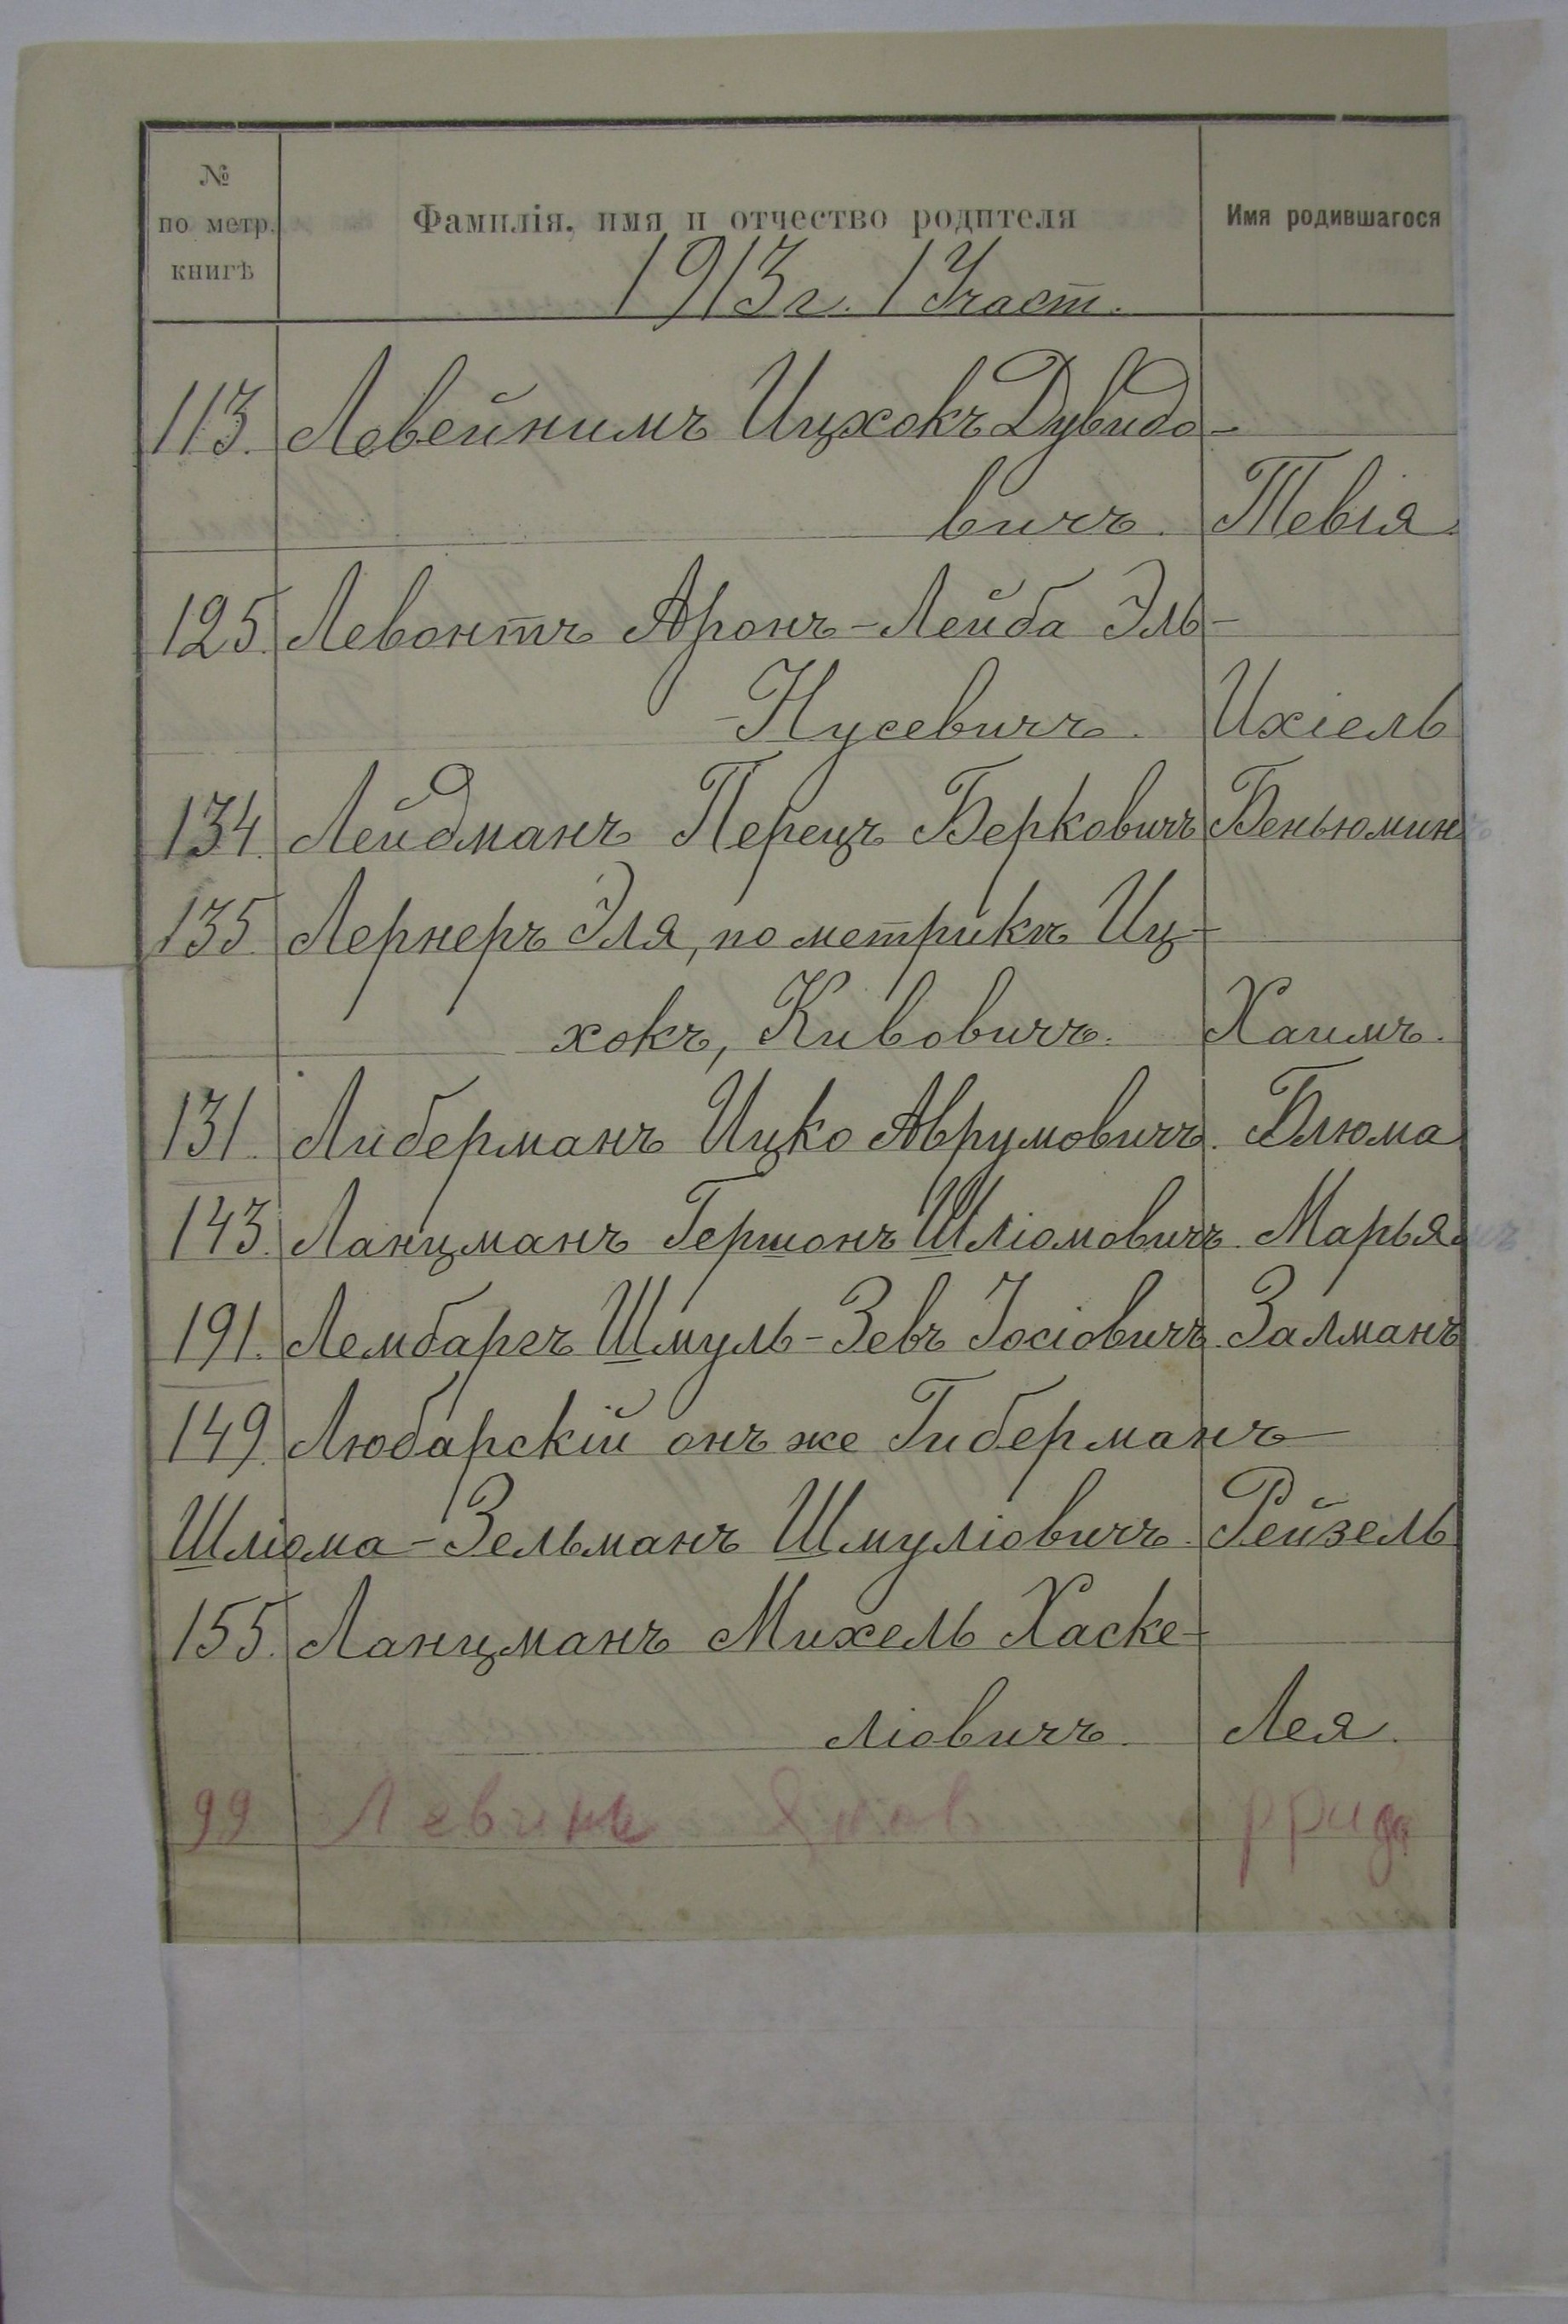 № по метр. книгѣ Фамилія, имя и отчество родителя Имя родившагося
1913 г. 1 Участ.
113. Левейнимъ Ицхокъ Дувидо-
вичъ. Тевія
125. Левонтъ Аронъ-Лейба Эль-
-Нусевичъ. Ихіель
134. Лейдманъ Перецъ Берковичъ Беньюминъ
135 Лернеръ Эля, по метрикѣ Иц-
хокъ, Кивовичъ. Хаимъ.
131. Либерманъ Ицко Аврумовичъ. Блюма
143. Ланцманъ Гершонъ Шліомовичъ. Марьям
191. Лембаргъ Шмуль-Зевъ Іосіовичъ. Залманъ
149. Любарскій онъ же Гиберманъ
Шліома-Зельманъ Шмуліовичъ. Рейзель
155. Ланцманъ Михель Хаске-
ліовичъ. Лея.
99 Левинъ